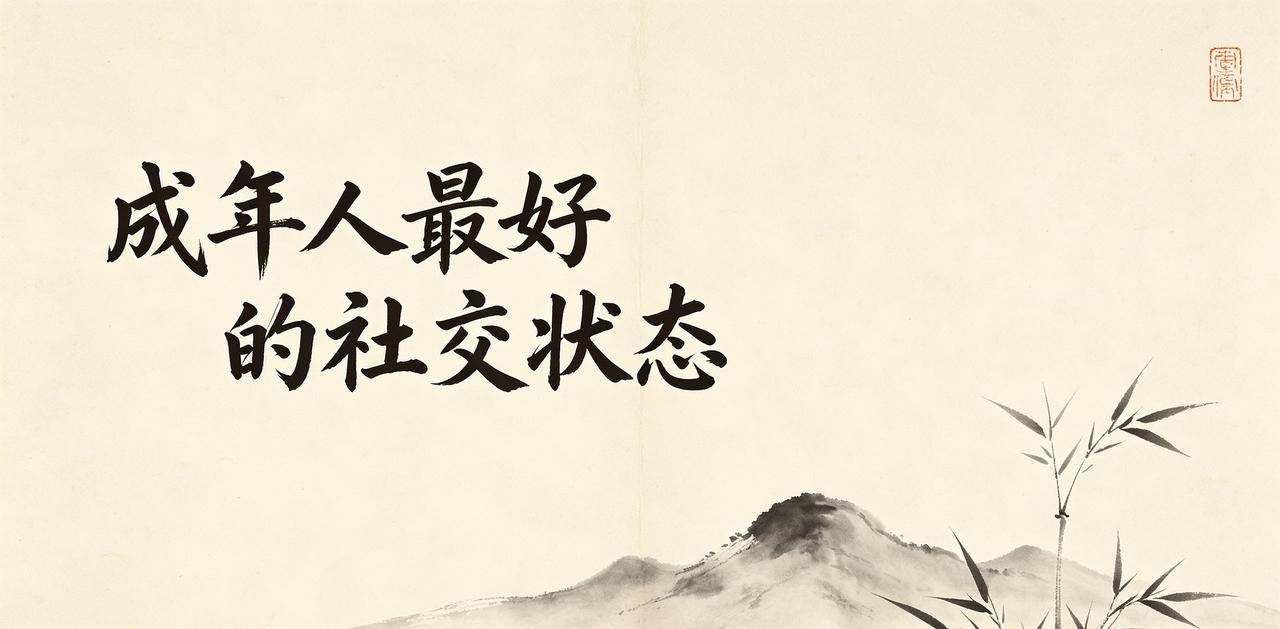 成年人最好
的社交状态